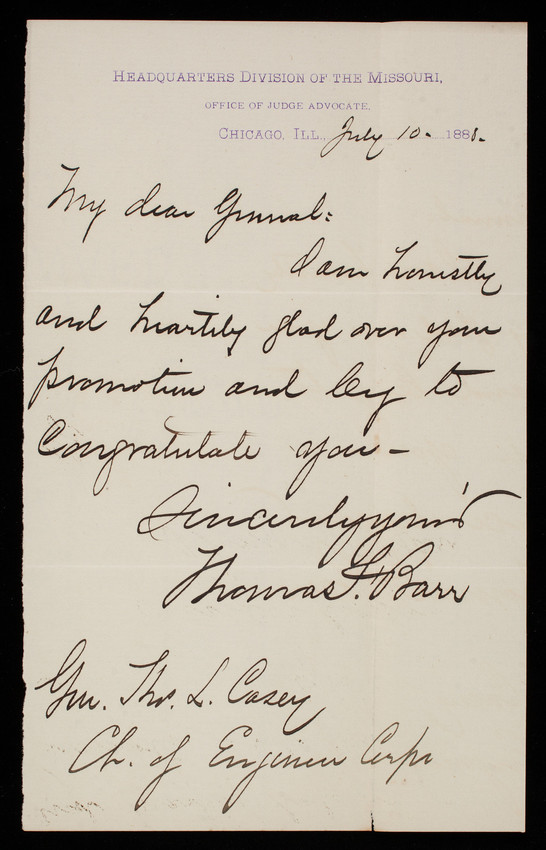 HEADQUARTERS DIVISION OF THE MISSOURI,
OFFICE OF JUDGE ADVOCATE.
CHICAGO, ILL., July 10. 1888.
My dear General:
I am honestly
and heartily glad over your
promotion and beg to
Congratulate you —
Sincerely yours
Thomas F. Barr
Gen. Thos. L. Casey
Ch. of Engineer Corps